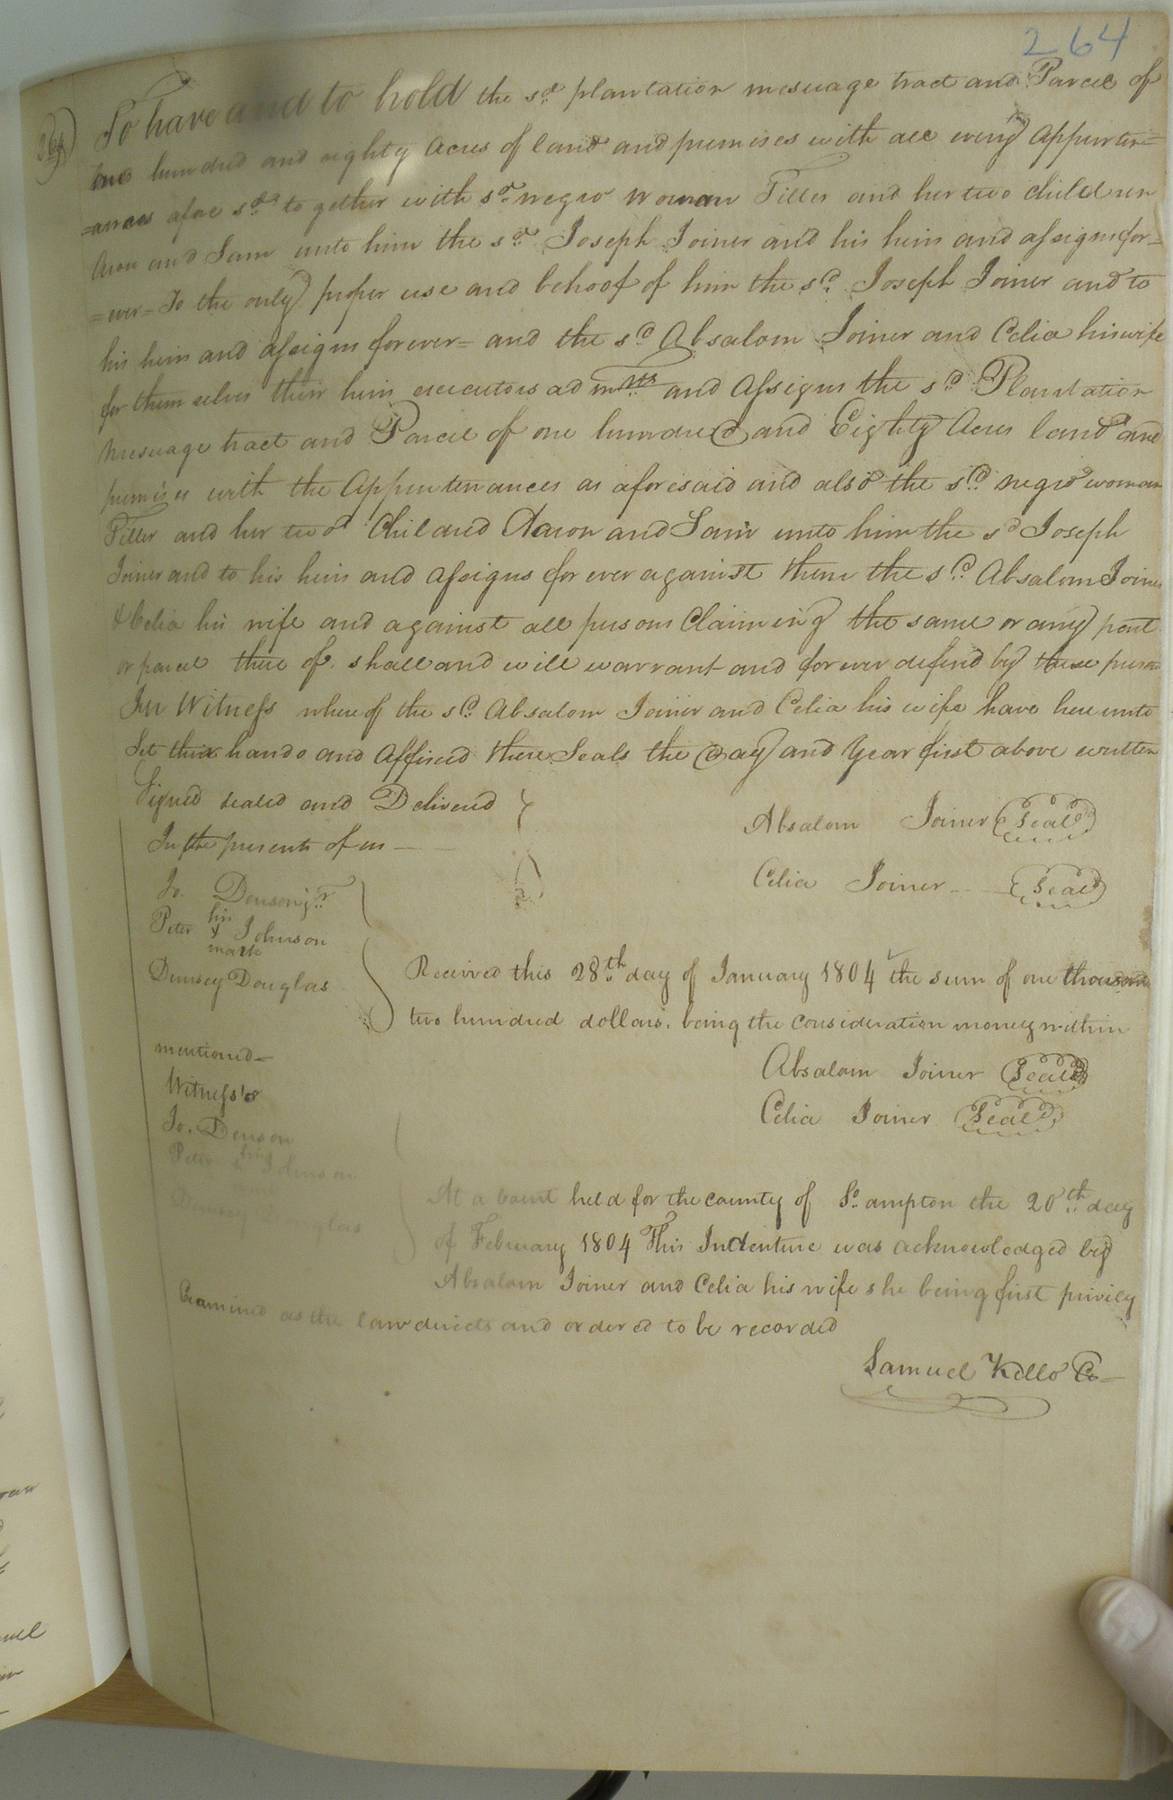 264
To have and to hold the sd. plantation mesuage tract and Parcel of
one hundred and eighty acres of land and premises with all every appurten=
=ances afore sd. to gether with sd. negro woman Tiller and her two children
Aron and Sam unto him the sd. Joseph Joiner and his heirs and assigns for=
=ever= To the only proper use and behoof of him the sd. Joseph Joiner and to
his heirs and assigns forever= and the sd. Absalom Joiner and Celia his wife
for them selves their heirs executors adminrs. and assigns the sd. Plantation
Mesuage tract and Parcel of one hundred and Eighty Acres land and
premises with the appurtenances as aforesaid and also the sd. negro woman
Tiller and her two Childred Aaron and Sam unto him the sd. Joseph
Joiner and to his heirs and assigns for ever against them the sd. Absalom Joiner
& Celia his wife and against all persons Claiming the same or any part
or parcel there of. shall and will warrant and for ever defend by these
In Witness where of the sd. Absalom Joiner and Celia his wife have here unto
Set their hands and affixed there Seals the Day and Year first above written
Signed sealed and Deliverd
In the presents of us —
Absalom Joiner (Seal)
Celia Joiner (Seal)
Jo. Denson jr.
Peter his Johnson
mark
Demsey Douglas
Received this 28th. day of January 1804 the sum of one thousand
two hundred dollars. being the consideration money within
mentiond=
Absalom Joiner (Seal)
Celia Joiner (Seal)
Witness's
Jo. Denson
Peter his Johnson
Demsey Douglas
At a Court held for the county of So.ampton the 20th. day
of February 1804 This Indenture was acknowledged by
Absalom Joiner and Celia his wife she being first privily
Examined as the law directs and orderd to be recorded
Samuel Kello Co—